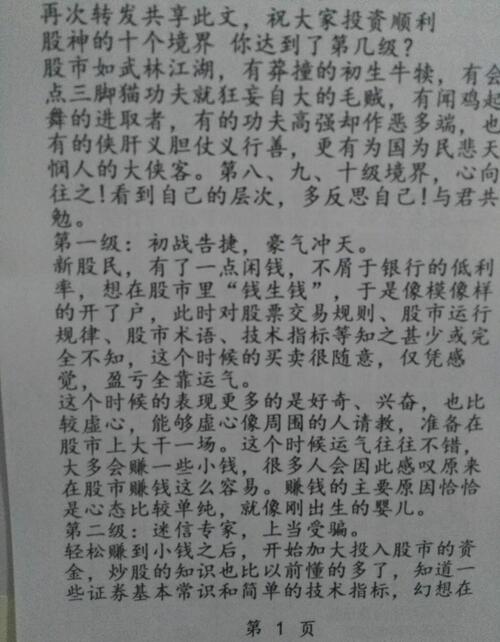 再次转发共享此文，祝大家投资顺利
股神的十个境界 你达到了第几级？
股市如武林江湖，有莽撞的初生牛犊，有会
点三脚猫功夫就狂妄自大的毛贼，有闻鸡起
舞的进取者，有的功夫高强却作恶多端，也
有的侠肝义胆仗义行善，更有为国为民悲天
悯人的大侠客。第八、九、十级境界，心向
往之！看到自己的层次，多反思自己！与君共
勉。
第一级：初战告捷，豪气冲天。
新股民，有了一点闲钱，不屑于银行的低利
率，想在股市里“钱生钱”，于是像模像样
的开了户，此时对股票交易规则、股市运行
规律、股市术语、技术指标等知之甚少或完
全不知，这个时候的买卖很随意，仅凭感
觉，盈亏全靠运气。
这个时候的表现更多的是好奇、兴奋，也比
较虚心，能够虚心像周围的人请教，准备在
股市上大干一场。这个时候运气往往不错，
大多会赚一些小钱，很多人会因此感叹原来
在股市赚钱这么容易。赚钱的主要原因恰恰
是心态比较单纯，就像刚出生的婴儿。
第二级：迷信专家，上当受骗。
轻松赚到小钱之后，开始加大投入股市的资
金，炒股的知识也比以前懂的多了，知道一
些证券基本常识和简单的技术指标，幻想在
第 1 页